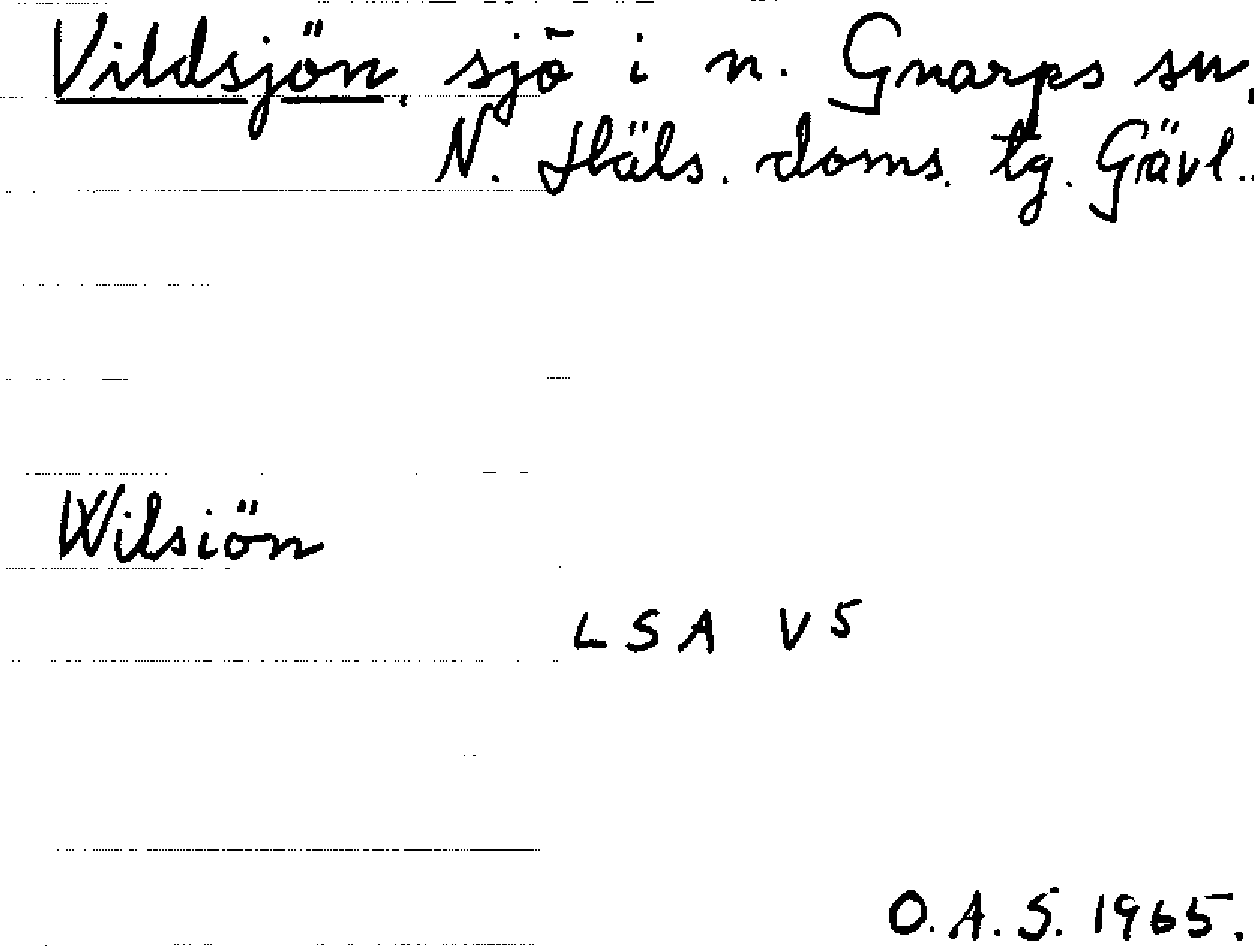 Vildsjön, sjö i n. Gnarps sn,
N. Häls. doms. tg. Gävl..
Wilsiön
LSA V5
O.A.S. 1965.